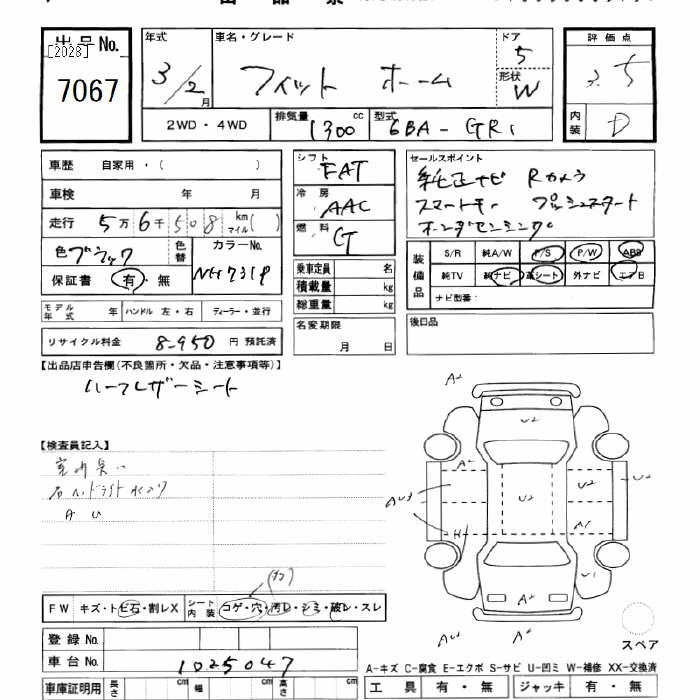 出品No.
[2028]
7067
年式 車名・グレード ドア 評価点
3/2月 フィット ホーム 5 3.5
形状 W
2WD・4WD 排気量 1300 cc 型式 6BA-GR1 内装 D
車歴 自家用・( )
車検 年 月
走行 5万6千508 km マイル( )
色 ブラック 色替 カラーNo. NH731P
保証書 有・無
シフト FAT
冷房 AAC
燃料 G
乗車定員 名
積載量 kg
総重量 kg
セールスポイント
純正ナビ Rカメラ
スマートキー プッシュスタート
ホンダセンシング
装備品 S/R 純A/W P/S P/W ABS
純TV 純ナビ 革シート 外ナビ エアB
ナビ型番:
モデル年式 年 ハンドル 左・右 ディーラー・並行
リサイクル料金 8,950 円 預託済
名変期限 月 日
後日品
【出品店申告欄(不良箇所・欠品・注意事項等)】
ハーフレザーシート
【検査員記入】
室内臭い
A U
FW キズ・トビ石・割レX シート内装 コゲ・穴・汚レ・シミ・破レ・スレ
登録No.
車台No. 1025047
車庫証明用 長さ cm 幅 cm 高さ cm
A2
U2
A2
U2
U2
AU3
H
A1
U1
AU2
A2
スペア
A-キズ C-腐食 E-エクボ S-サビ U-凹ミ W-補修 XX-交換済
工具 有・無 ジャッキ 有・無